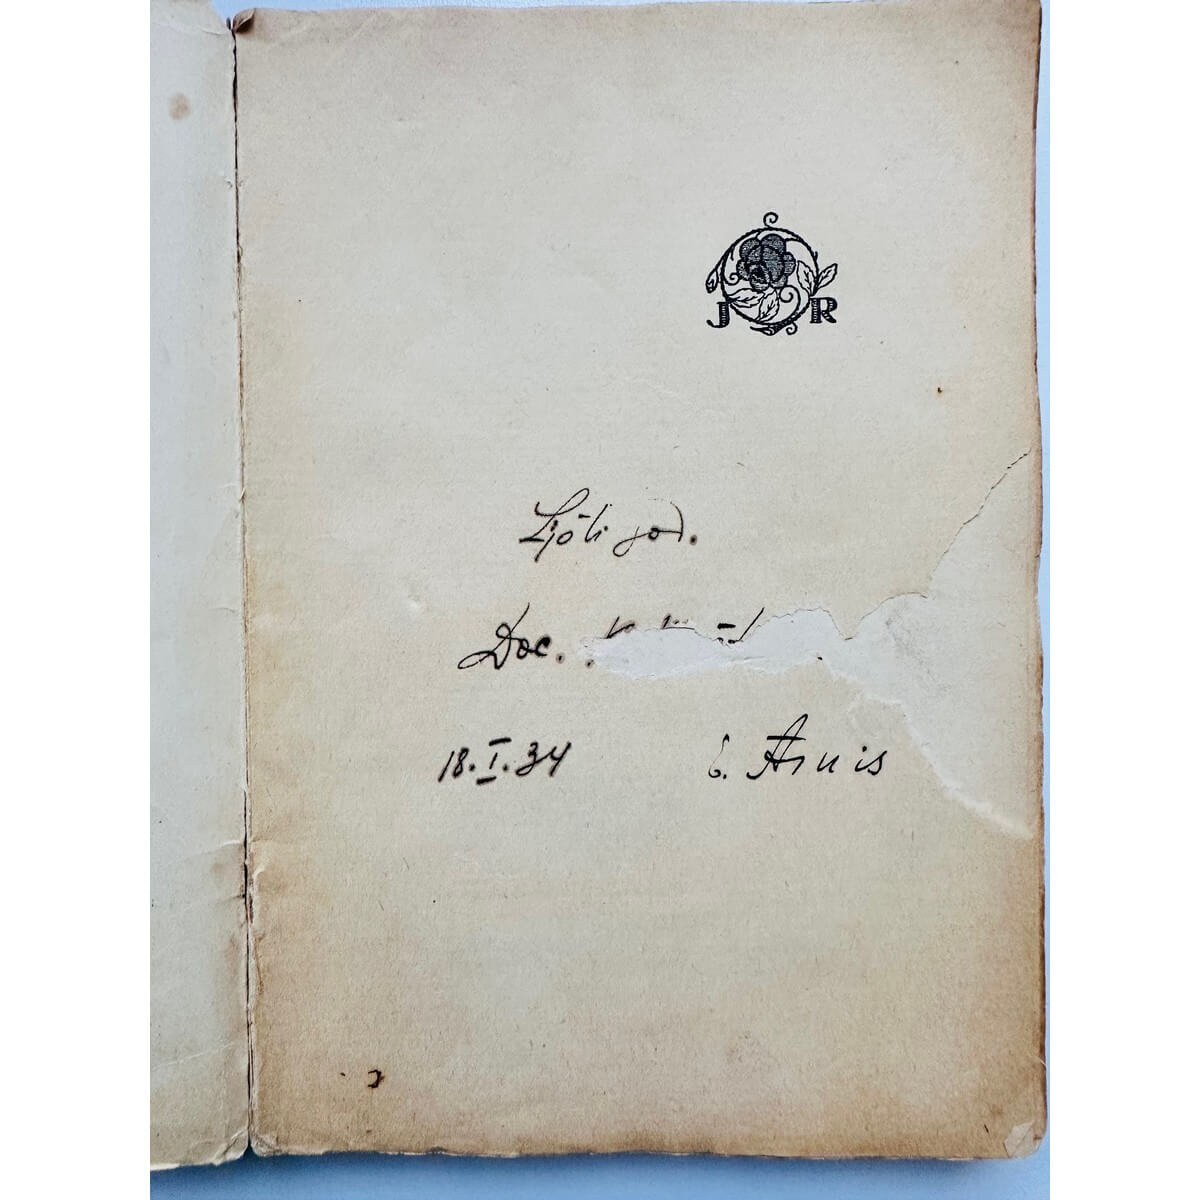 J R
Ļoti god.
Doc.
18.I.34 E. Arnis